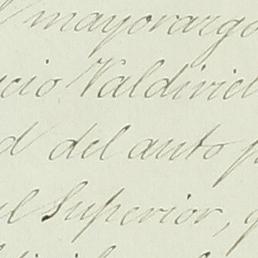 mayorazgo
cio Valdiviel
d del auto p
el Superior, q